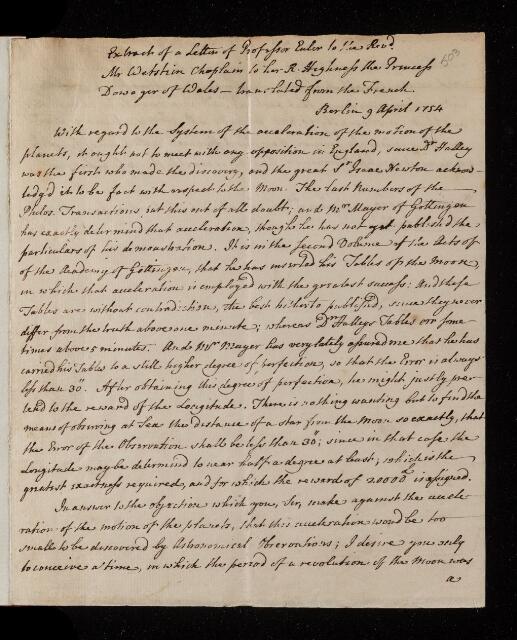 Extract of a Letter of Professor Euler to the Revd.
Mr Wetstein Chaplain to her R. Highness the Princess
Dowager of Wales — translated from the French.
503
Berlin 9 April 1754
With regard to the System of the acceleration of the motion of the
planets, it ought not to meet with any opposition in England, since Dr Halley
was the first who made the discovery, and the great Sr Isaac Newton acknow-
ledg'd it to be fact with respect to the Moon. The last Numbers of the
Philos. Transactions, put this out of all doubt; and Mr Mayer of Gottingen
has exactly determind that acceleration, though he has not yet publish'd the
particulars of his demonstration. It is in the second Volume of the Acts of
of the Academy of Gottingen, that he has inserted his Tables of the Moon,
in which that acceleration is employed with the greatest success: And these
Tables are without contradiction, the best hitherto publish'd, since they never
differ from the truth above one minute; whereas Dr Halleys Tables err some
times above 5 minutes. And Mr Mayer has very lately assured me that he has
carried his Tables to a still higher degree of perfection, so that the Error is always
less than 30". After obtaining this degree of perfection, he might justly pre-
tend to the reward of the Longitude. There is nothing wanting but to find the
means of observing at Sea the distance of a star from the Moon so exactly, that
the Error of the Observation shall be less than 30"; since in that case the
Longitude may be determind to near half a degree at least; which is the
greatest exactness required, and for which the reward of 20000 L is assigned.
In answer to the objection which you, Sir, make against the accele-
ration of the motion of the planets, that this acceleration would be too
small to be discovered by Astronomical Observations; I desire you only
to conceive a time, in which the period of a revolution of the Moon was
a